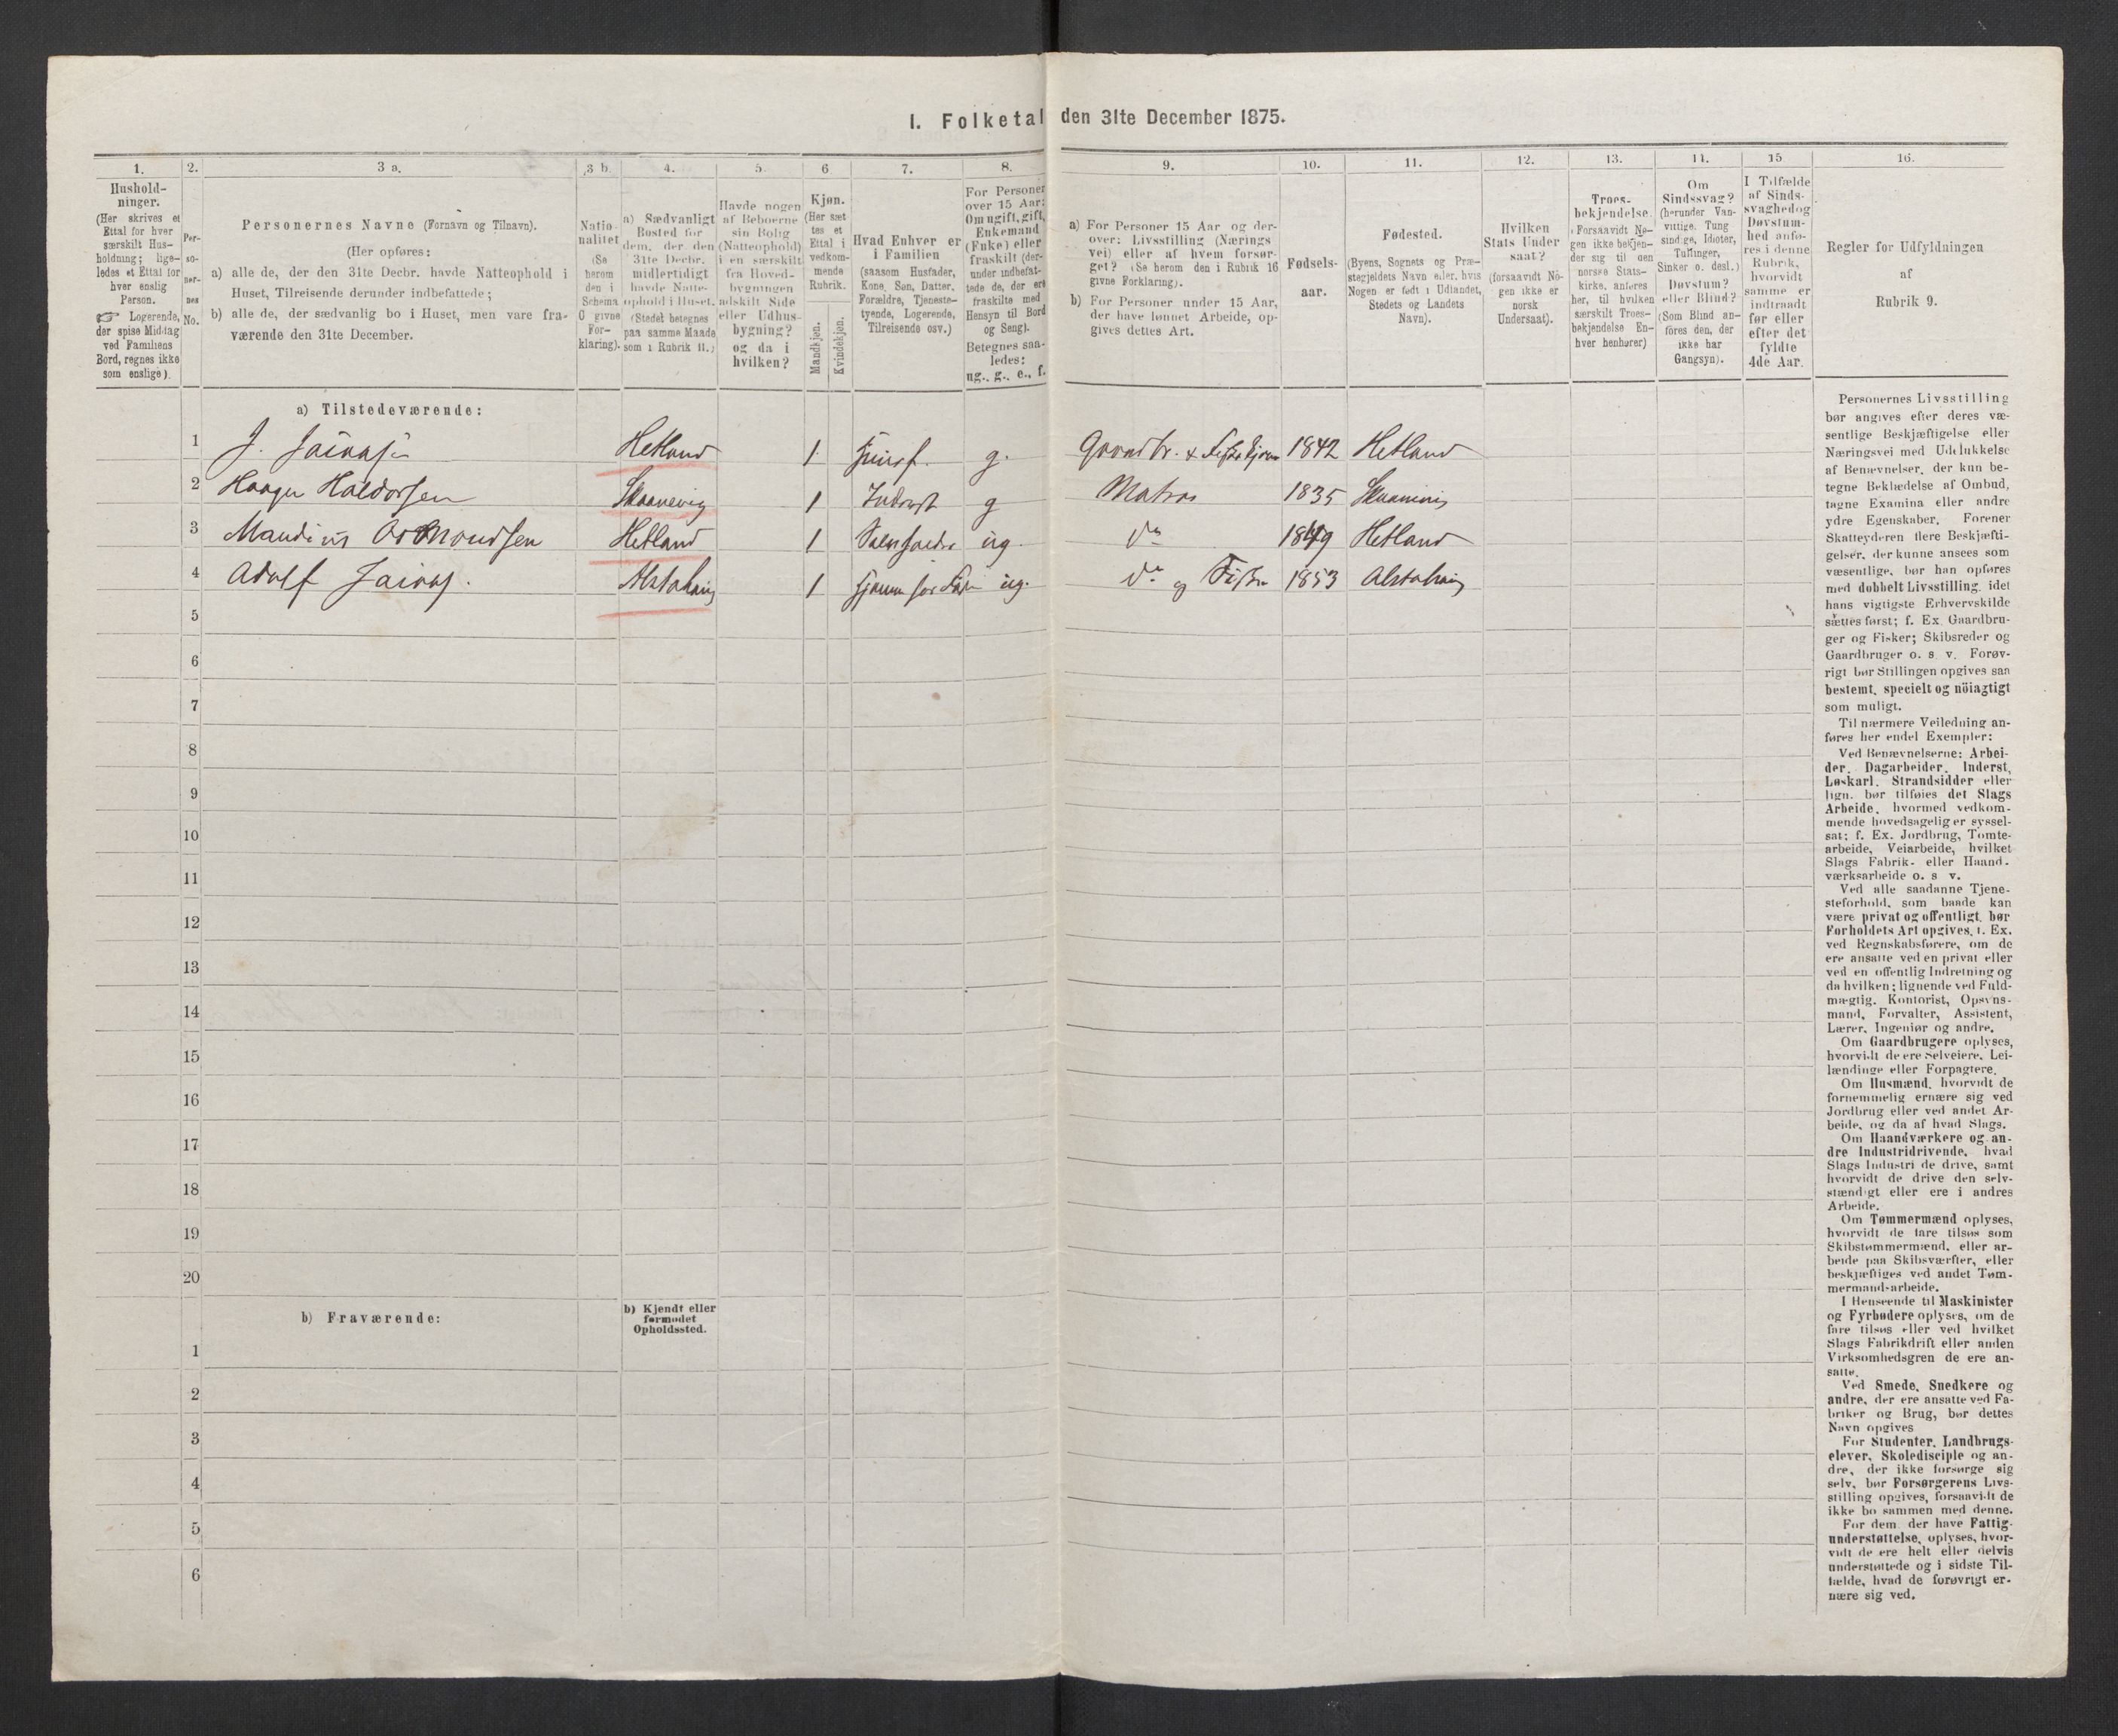 I. Folketal den 31te December 1875.
1. 2. 3 a. 3 b. 4. 5. 6 7. 8. 9. 10. 11. 12. 13. 14. 15 16.
Hushold-
ninger.
(Her skrives et
Ettal for hver
særskilt Hus-
holdning; lige-
ledes et Ettal for
hver enslig
Person.
☞ Logerende,
der spise Middag
ved Familiens
Bord, regnes ikke
som enslige).
Per-
so-
ner-
nes
No.
Personernes Navne (Fornavn og Tilnavn).
(Her opføres:
a) alle de, der den 31te Decbr. havde Natteophold i
Huset, Tilreisende derunder indbefattede;
b) alle de, der sædvanlig bo i Huset, men vare fra-
værende den 31te December.
Natio-
nalitet
(Se
herom
den i
Schema
O givne
For-
klaring).
a) Sædvanligt
Bosted for
dem, der den
31te Decbr.
midlertidigt
havde Natte-
ophold i Huset.
(Stedet betegnes
paa samme Maade
som i Rubrik 11.)
Havde nogen
af Beboerne
sin Bolig
(Natteophold)
i en særskilt
fra Hoved-
bygningen
adskilt Side
eller Udhus-
bygning?
og da i
hvilken?
Kjøn.
(Her sæt
tes et
Ettal i
vedkom-
mende
Rubrik.
Mandkjøn.
Kvindekjøn.
Hvad Enhver er
i Familien
(saasom Husfader,
Kone, Søn, Datter,
Forældre, Tjeneste-
tyende, Logerende,
Tilreisende osv.)
For Personer
over 15 Aar:
Om ugift, gift,
Enkemand
(Enke) eller
fraskilt (der-
under indbefat-
tede de, der ere
fraskilte med
Hensyn til Bord
og Seng).
Betegnes saa-
ledes:
ug., g., e., f.
a) For Personer 15 Aar og der-
over: Livsstilling (Nærings
vei) eller af hvem forsør-
get? (Se herom den i Rubrik 16
givne Forklaring).
b) For Personer under 15 Aar,
der have lønnet Arbeide, op-
gives dettes Art.
Fødsels-
aar.
Fødested.
(Byens, Sognets og Præ-
stegjeldets Navn eller, hvis
Nogen er født i Udlandet,
Stedets og Landets
Navn).
Hvilken
Stats Under
saat?
(forsaavidt No-
gen ikke er
norsk
Undersaat).
Troes-
bekjendelse.
(Forsaavidt No-
gen ikke bekjen-
der sig til den
norske Stats-
kirke, anføres
her, til hvilken
særskilt Troes-
bekjendelse En-
hver henhører)
Om
Sindssvag?
(herunder Van-
vittige, Tung
sindige, Idioter,
Tullinger,
Sinker o. desl.)
Døvstum?
eller Blind?
(Som Blind an-
føres den, der
ikke har
Gangsyn).
I Tilfælde
af Sinds-
svaghed og
Døvstum-
hed anfø-
res i denne
Rubrik,
hvorvidt
samme er
indtraadt
før eller
efter det
fyldte
4de Aar.
Regler for Udfyldningen
af
Rubrik 9.
a) Tilstedeværende:
1 J. Hetland 1 g. 1842 Hetland
2 Haagen Haldorsen Skaanevig 1 Inderst g Matros 1835
3 Hetland 1 ug. do 1849 Hetland
4 Adolf Alstahaug 1 ug. do og 1853 Alstahaug
5
6
7
8
9
10
11
12
13
14
15
16
17
18
19
20
b) Fraværende:
b) Kjendt eller
formodet
Opholdssted.
1
2
3
4
5
6
Personernes Livsstilling
bør angives efter deres væ-
sentlige Beskjæftigelse eller
Næringsvei med Udelukkelse
af Benævnelser, der kun be-
tegne Beklædelse af Ombud,
tagne Examina eller andre
ydre Egenskaber. Forener
Skatteyderen flere Beskjæfti-
gelser, der kunne ansees som
væsentlige, bør han opføres
med dobbelt Livsstilling, idet
hans vigtigste Erhvervskilde
sættes først; f. Ex. Gaardbru-
ger og Fisker; Skibsreder og
Gaardbruger o. s. v. Forøv-
rigt bør Stillingen opgives saa
bestemt, specielt og nöiagtigt
som muligt.
Til nærmere Veiledning an-
føres her endel Exempler:
Ved Benævnelserne: Arbei-
der, Dagarbeider, Inderst,
Løskarl, Strandsidder eller
lign. bør tilføies det Slags
Arbeide, hvormed vedkom-
mende hovedsagelig er syssel-
sat; f. Ex. Jordbrug, Tomte-
arbeide, Veiarbeide, hvilket
Slags Fabrik- eller Haand-
værksarbeide o. s v.
Ved alle saadanne Tjene-
steforhold, som baade kan
være privat og offentligt, bør
Forholdets Art opgives, f. Ex.
ved Regnskabsførere, om de
ere ansatte ved en privat eller
ved en offentlig Indretning og
da hvilken; lignende ved Fuld-
mægtig, Kontorist, Opsyns-
mand, Forvalter, Assistent,
Lærer, Ingeniør og andre.
Om Gaardbrugere oplyses,
hvorvidt de ere Selveiere, Lei-
lændinge eller Forpagtere.
Om Husmænd, hvorvidt de
fornemmelig ernære sig ved
Jordbrug eller ved andet Ar-
beide, og da af hvad Slags.
Om Haandværkere og an-
dre Industridrivende, hvad
Slags Industri de drive, samt
hvorvidt de drive den selv-
stændigt eller ere i andres
Arbeide.
Om Tømmermænd oplyses,
hvorvidt de fare tilsøs som
Skibstømmermænd, eller ar-
beide paa Skibsværfter, eller
beskjæftiges ved andet Tøm-
mermandsarbeide.
I Henseende til Maskinister
og Fyrbødere oplyses, om de
fare tilsøs eller ved hvilket
Slags Fabrikdrift eller anden
Virksomhedsgren de ere an-
satte.
Ved Smede, Snedkere og
andre, der ere ansatte ved Fa-
briker og Brug, bør dettes
Navn opgives
For Studenter, Landbrugs-
elever, Skoledisciple og an-
dre, der ikke forsørge sig
selv, bør Forsørgerens Livs-
stilling opgives, forsaavidt de
ikke bo sammen med denne.
For dem, der have Fattig-
understøttelse, oplyses, hvor-
vidt de ere helt eller delvis
understøttede og i sidste Til-
fælde, hvad de forøvrigt er-
nære sig ved.